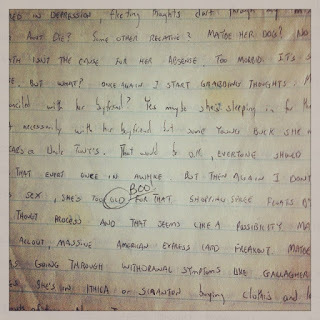 ED IN DEPRESSION, fleeting thoughts dart through my
AUNT DIE? SOME OTHER RELATIVE? MAYBE HER DOG? NO
TH ISN'T THE CAUSE FOR HER ABSENSE. TOO MORBID. IT'S
E. BUT WHAT? ONCE AGAIN I START GRABBING THOUGHTS. M
with her boyfriend? Yes maybe she's sleeping in for the
necessarily with her boyfriend but some young buck she
That would be OK, EVERYONE SHOULD
THAT EVERY ONCE IN AWHILE. BUT THEN AGAIN I DON'T
BCO
SEX, SHE'S TOO OLD FOR THAT. SHOPPING SPREE
THOUGHT PROCESS AND THAT SEEMS LIKE A POSSIBILITY. MA
ALL OUT, MASSIVE AMERICAN EXPRESS CARD FREAKOUT. MAYBE
AS GOING THROUGH WITHDRAWAL SYMPTOMS LIKE GALLAGHER
SHE'S IN ITHICA OR SCRANTON buying clothes and